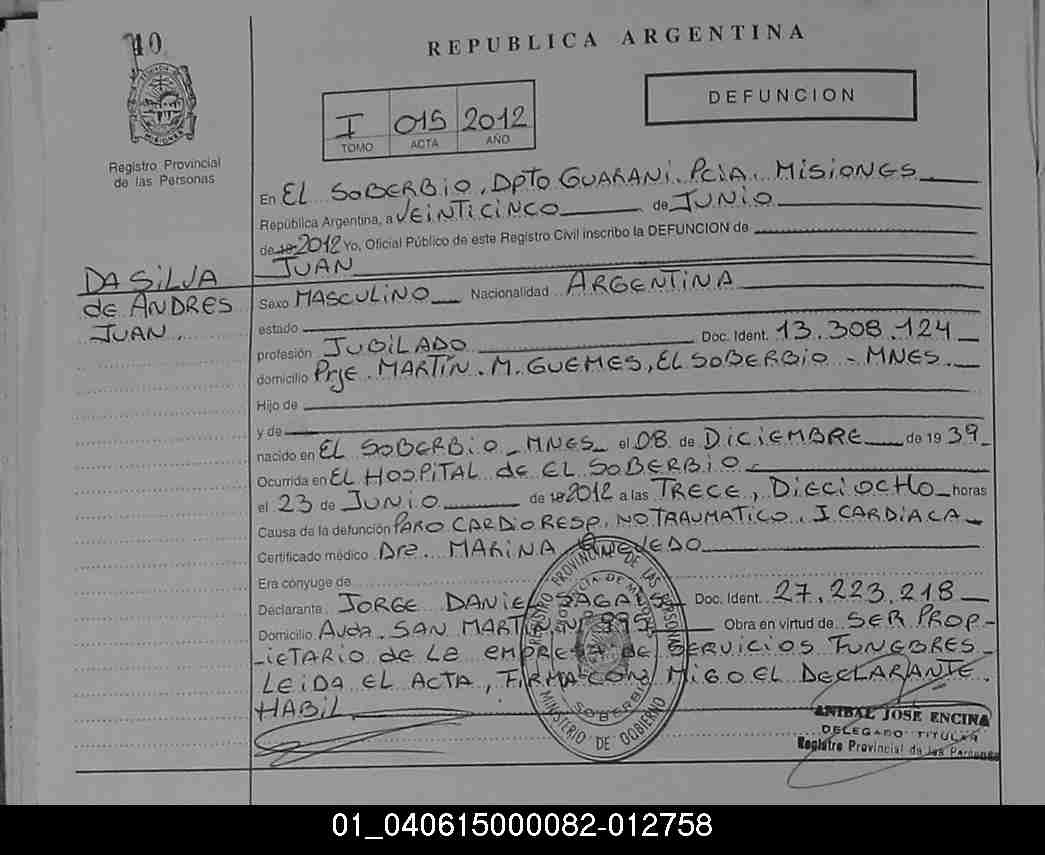 10
REPUBLICA ARGENTINA
DEFUNCION
I 015 2012
TOMO ACTA AÑO
PROVINCIA DE
MISIONES
Registro Provincial
de las Personas
En EL SOBERBIO, DPTO GUARANI. PCIA. MISIONES
República Argentina, a VEINTICINCO de JUNIO
de 19 2012 Yo, Oficial Público de este Registro Civil inscribo la DEFUNCION de
JUAN
DA SILVA
de ANDRES
JUAN.
Sexo MASCULINO Nacionalidad ARGENTINA
estado
profesión JUBILADO Doc. Ident. 13.308.124
domicilio Prje. MARTÍN. M. GUEMES, EL SOBERBIO - MNES.
Hijo de
y de
nacido en EL SOBERBIO - MNES el 08 de DICIEMBRE de 19 39
Ocurrida en EL HOSPITAL de EL SOBERBIO
el 23 de JUNIO de 19 2012 a las TRECE, DIECIOCHO horas
Causa de la defunción PARO CARDIORESP. NO TRAUMATICO. I CARDIACA
Certificado médico Dra. MARINA QUEVEDO
Era cónyuge de
Declarante JORGE DANIEL Doc. Ident. 27.223.218
Domicilio Avda. SAN MARTIN Nº 995 Obra en virtud de SER PROP-
-IETARIO de LA EMPRESA de SERVICIOS FUNEBRES
LEIDA EL ACTA, FIRMA CON MIGO EL DECLARANTE
HABIL
REGISTRO PROVINCIAL DE LAS PERSONAS
PCIA DE MISIONES
SOBERBIO
MINISTERIO DE GOBIERNO
ANIBAL JOSÉ ENCINA
DELEGADO TITULAR
Registro Provincial de las Personas
01_040615000082-012758